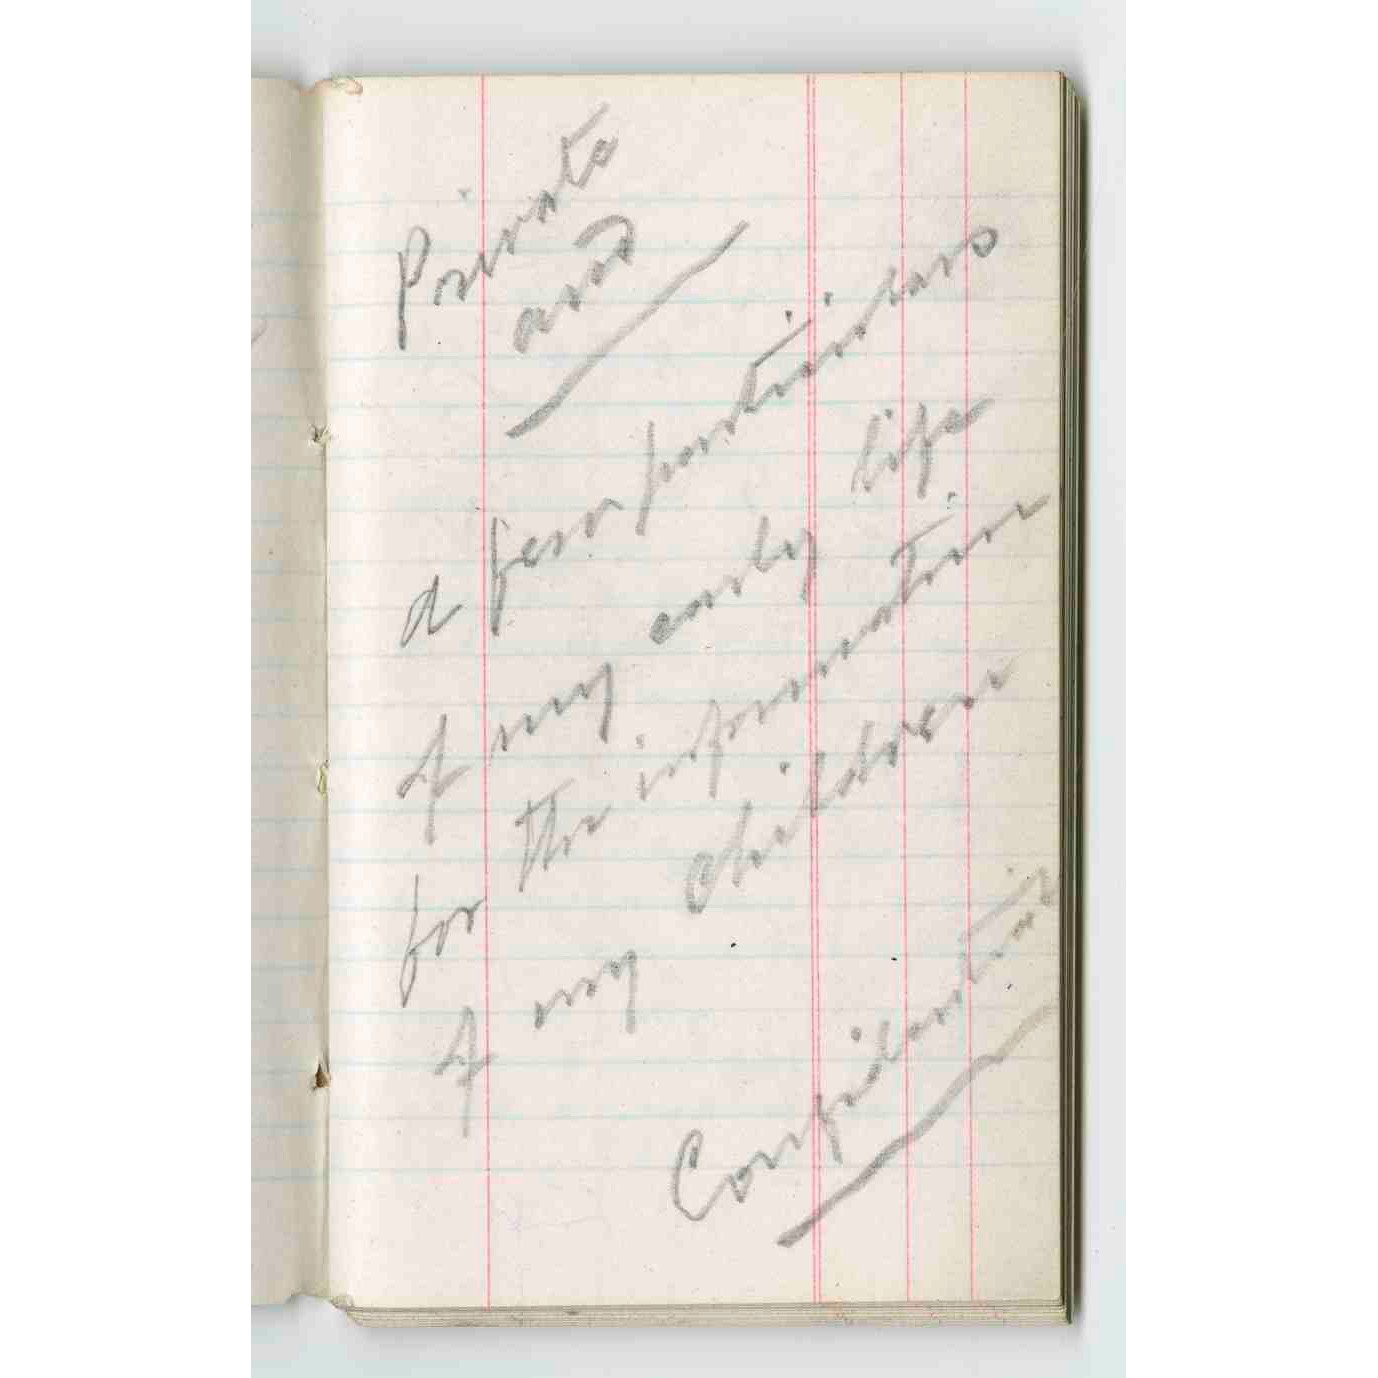 Private
and
a few particulars
of my early life
for the information
of my children
Confidential